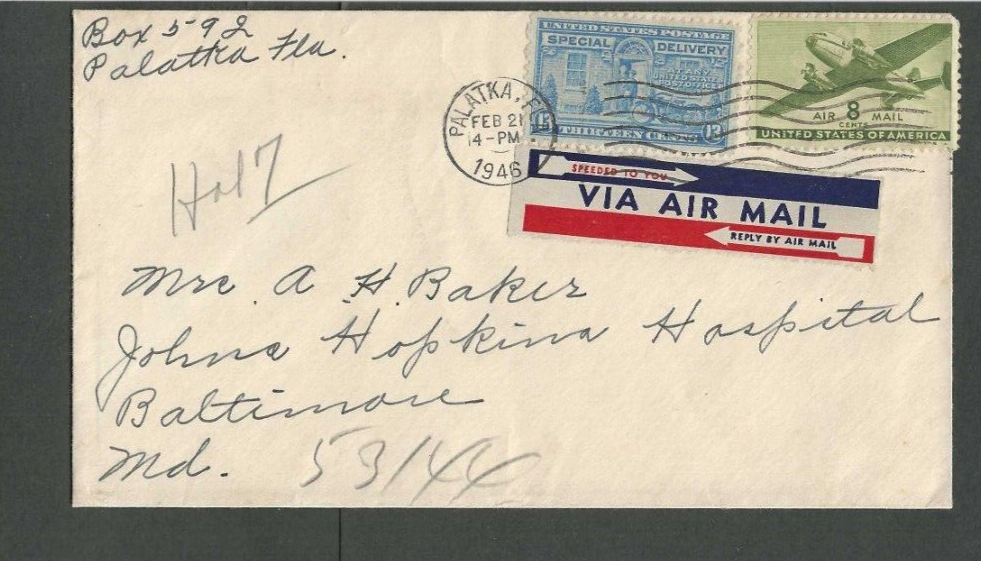 Box 592
Palatka Fla.
UNITED STATES POSTAGE
SPECIAL DELIVERY
AT ANY
UNITED STATES
POST OFFICE
13 13
THIRTEEN CENTS
AIR 8 MAIL
CENTS
UNITED STATES OF AMERICA
PALATKA, FL
FEB 21
4-PM
1946
SPEEDED TO YOU
VIA AIR MAIL
REPLY BY AIR MAIL
Mrs. A. H. Baker
Johns Hopkins Hospital
Baltimore
Md.
53144